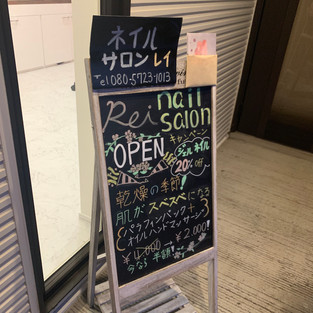 ネイル
サロン レイ
Tel 080-5723-1013
Rei nail
salon
キャンペーン
OPEN
ジェルネイル
20% off
乾燥の季節!
肌がスベスベになる
パラフィンパック+
オイルハンドマッサージ
¥4,000→¥2,000!
今なら半額